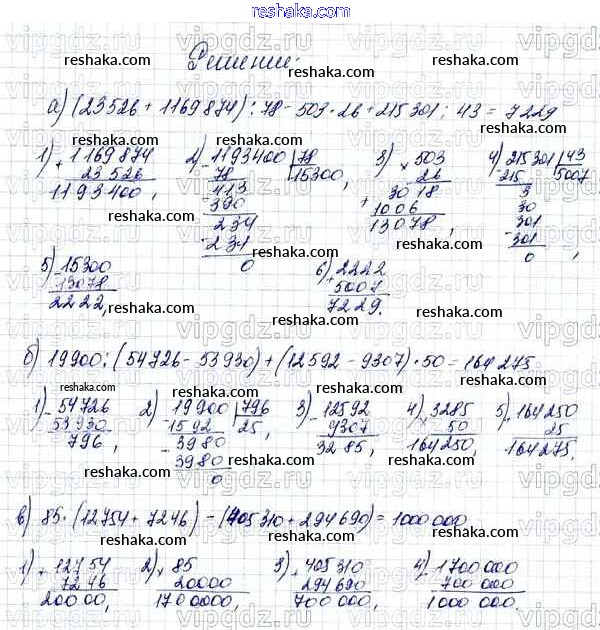 reshaka.com
Решение:
а) (23526 + 1169874) : 78 - 503 · 26 + 215301 : 43 = 7229
1) + 1169874 2) - 1193400 | 78 3) × 503 4) - 215301 | 43
23526 78 15300, 26 215 5007
1193400, - 413 + 3018 3
390 1006 30
- 234 13078, - 301
234 301
0 0,
5) - 15300 6) + 2222
13078 5007
2222, 7229.
б) 19900 : (54726 - 53930) + (12592 - 9307) · 50 = 164275
1) - 54726 2) - 19900 | 796 3) - 12592 4) × 3285 5) + 164250
53930 1592 25, 9307 50 25
796, - 3980 3285, 164250, 164275.
3980
0
в) 85 · (12754 + 7246) - (405310 + 294690) = 1000000
1) + 12754 2) × 85 3) + 405310 4) - 1700000
7246 20000 294690 700000
20000, 1700000, 700000, 1000000.